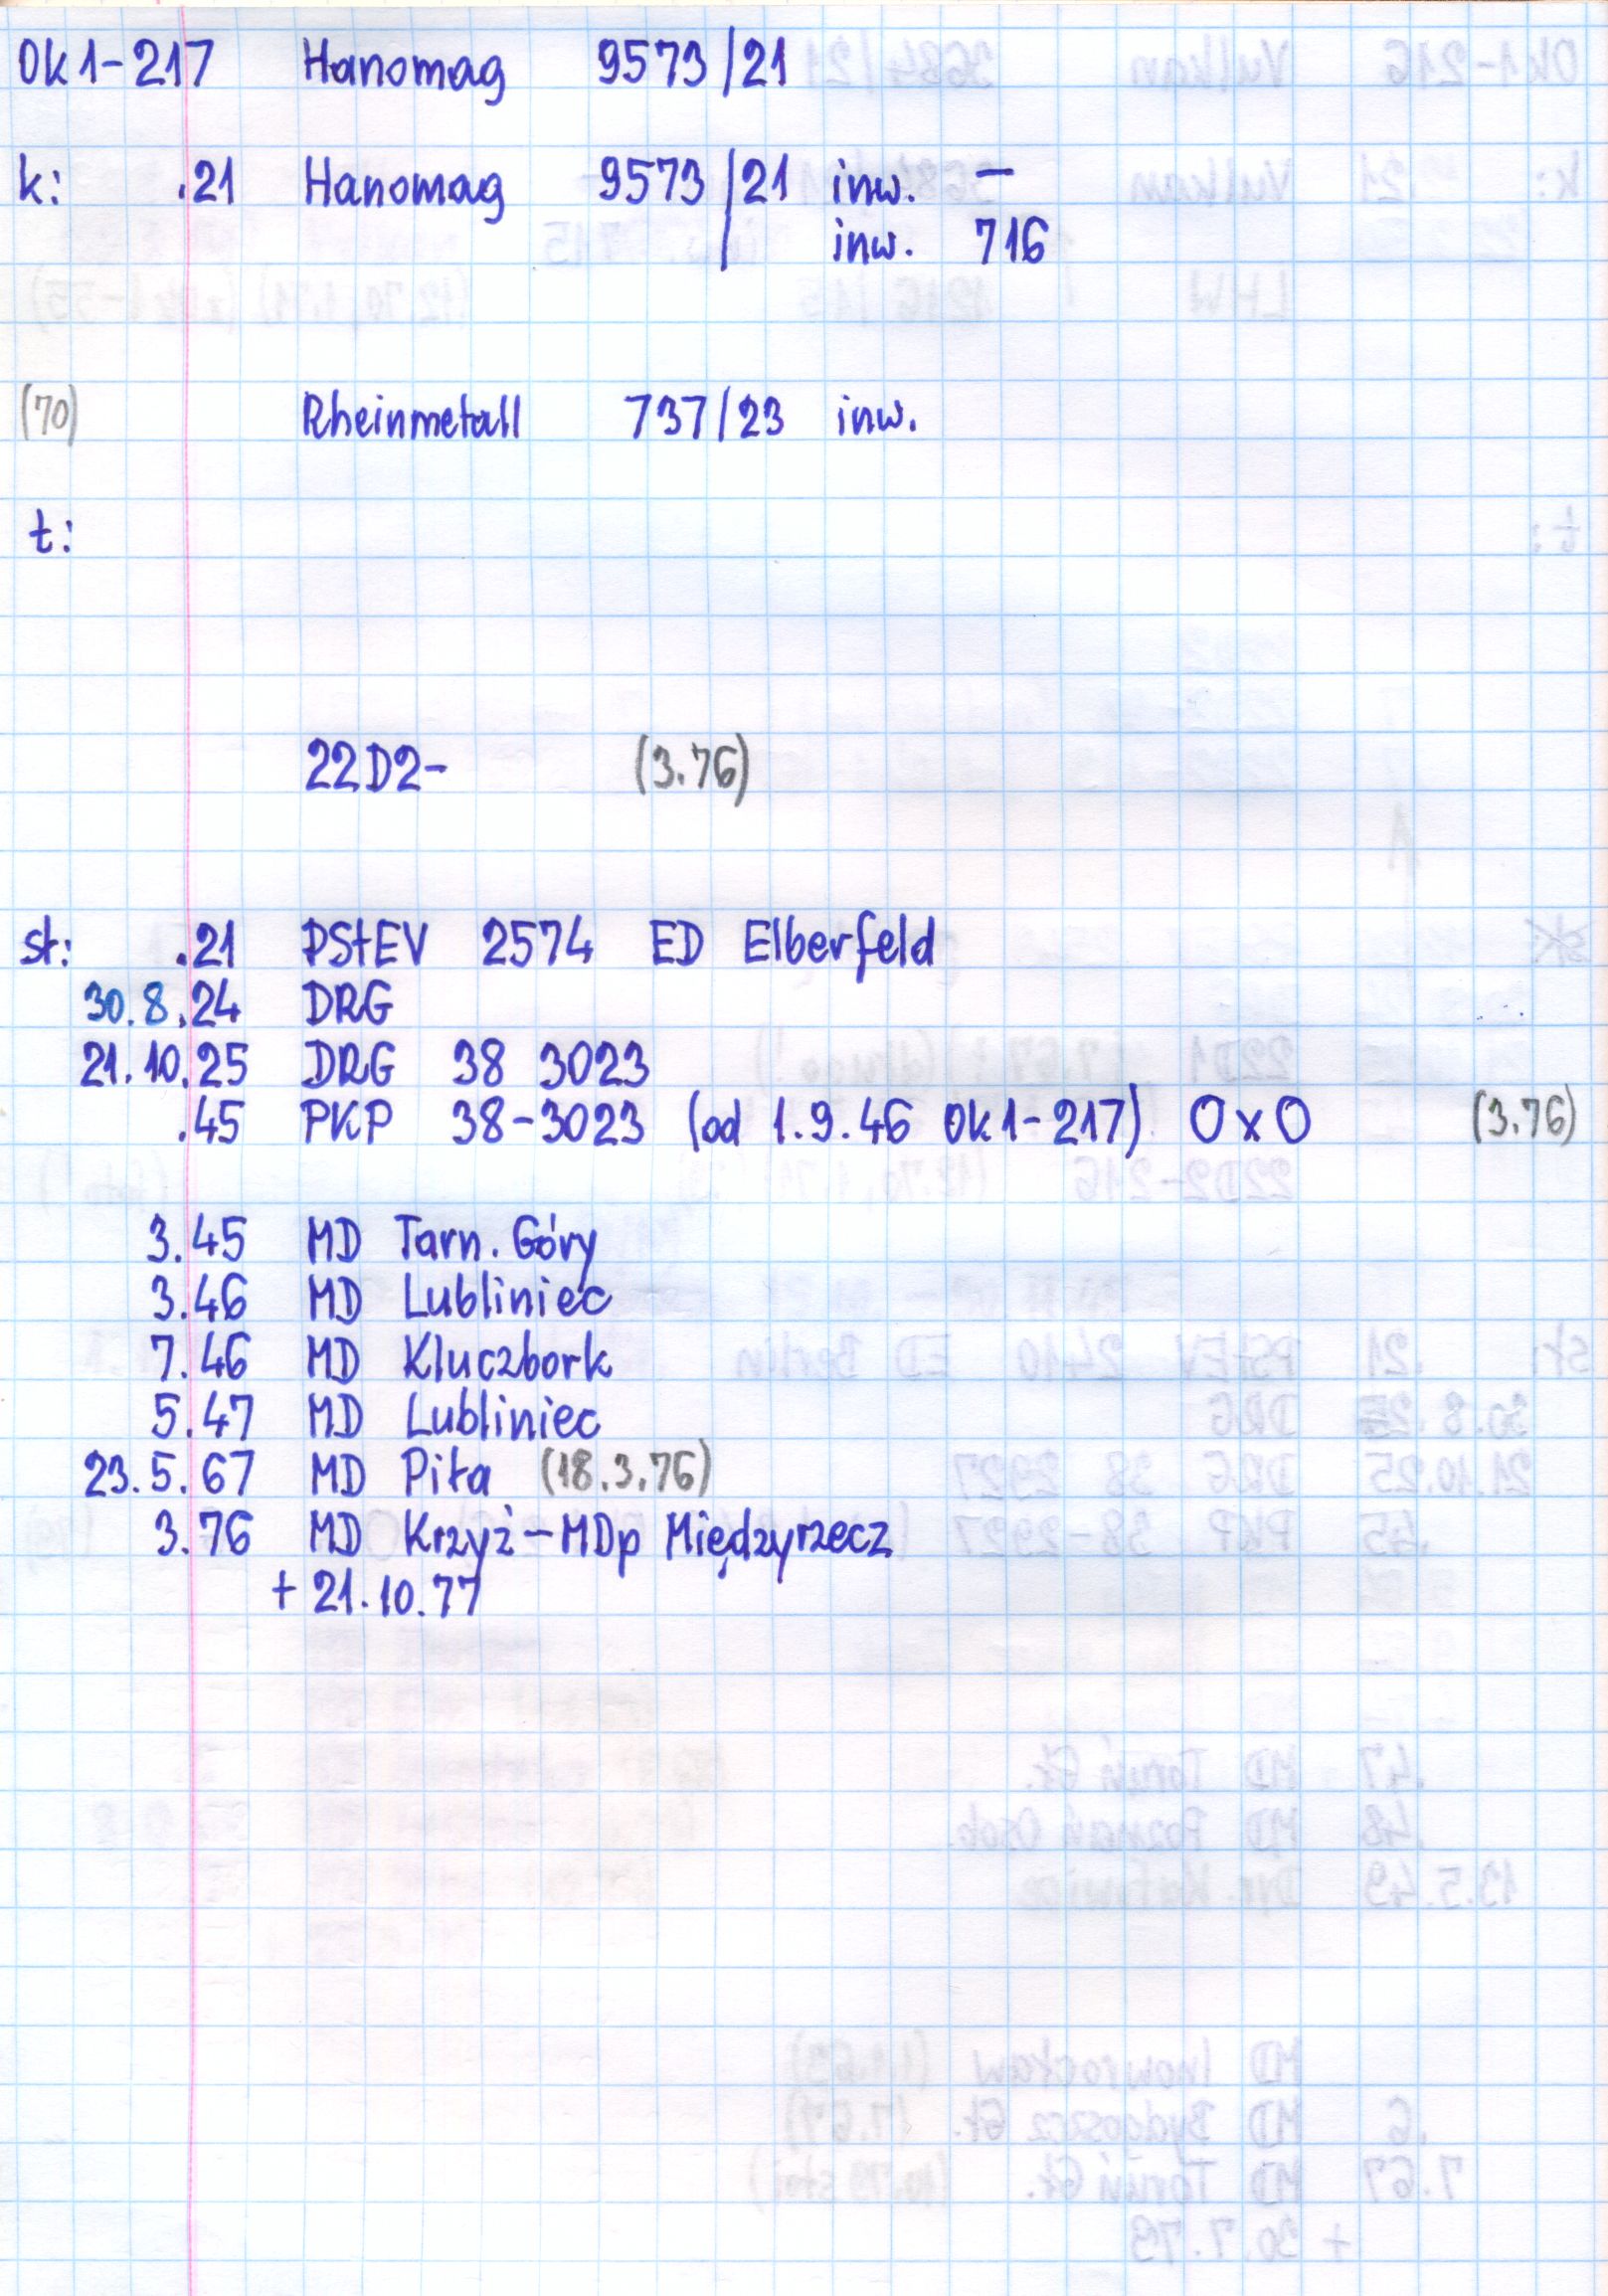 Ok1-217 Hanomag 9573/21
k: .21 Hanomag 9573/21 inw. –
inw. 716
(70) Rheinmetall 737/23 inw.
t:
22D2- (3.76)
st: .21 PStEV 2574 ED Elberfeld
30.8.24 DRG
21.10.25 DRG 38 3023
.45 PKP 38-3023 (od 1.9.46 Ok1-217) OxO (3.76)
3.45 MD Tarn. Góry
3.46 MD Lubliniec
7.46 MD Kluczbork
5.47 MD Lubliniec
23.5.67 MD Piła (18.3.76)
3.76 MD Krzyż-MDp Międzyrzecz
+ 21.10.77